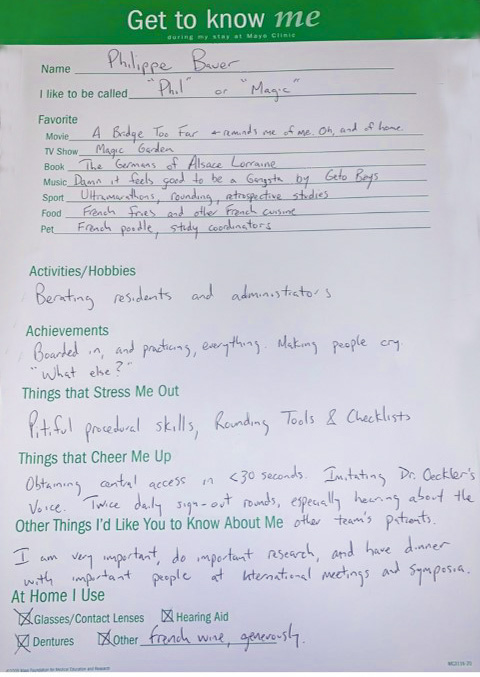 Get to know me
during my stay at Mayo Clinic
Name Philippe Bauer
I like to be called "Phil" or "Magic"
Favorite
Movie A Bridge Too Far ← reminds me of me. Oh, and of home.
TV Show Magic Garden
Book The Germans of Alsace Lorraine
Music Damn it feels good to be a Gangsta by Geto Boys
Sport Ultramarathons, rounding, retrospective studies
Food French fries and other French cuisine
Pet French poodle, study coordinators
Activities/Hobbies
Berating residents and administrators
Achievements
Boarded in, and practicing, everything. Making people cry.
"What else?"
Things that Stress Me Out
Pitiful procedural skills, Rounding Tools & Checklists
Things that Cheer Me Up
Obtaining central access in <30 seconds. Imitating Dr. Oeckler's
Voice. Twice daily sign-out rounds, especially hearing about the
other team's patients.
Other Things I'd Like You to Know About Me
I am very important, do important research, and have dinner
with important people at International meetings and Symposia.
At Home I Use
Glasses/Contact Lenses Hearing Aid
Dentures Other French wine, generously.
Mayo Foundation for Medical Education and Research